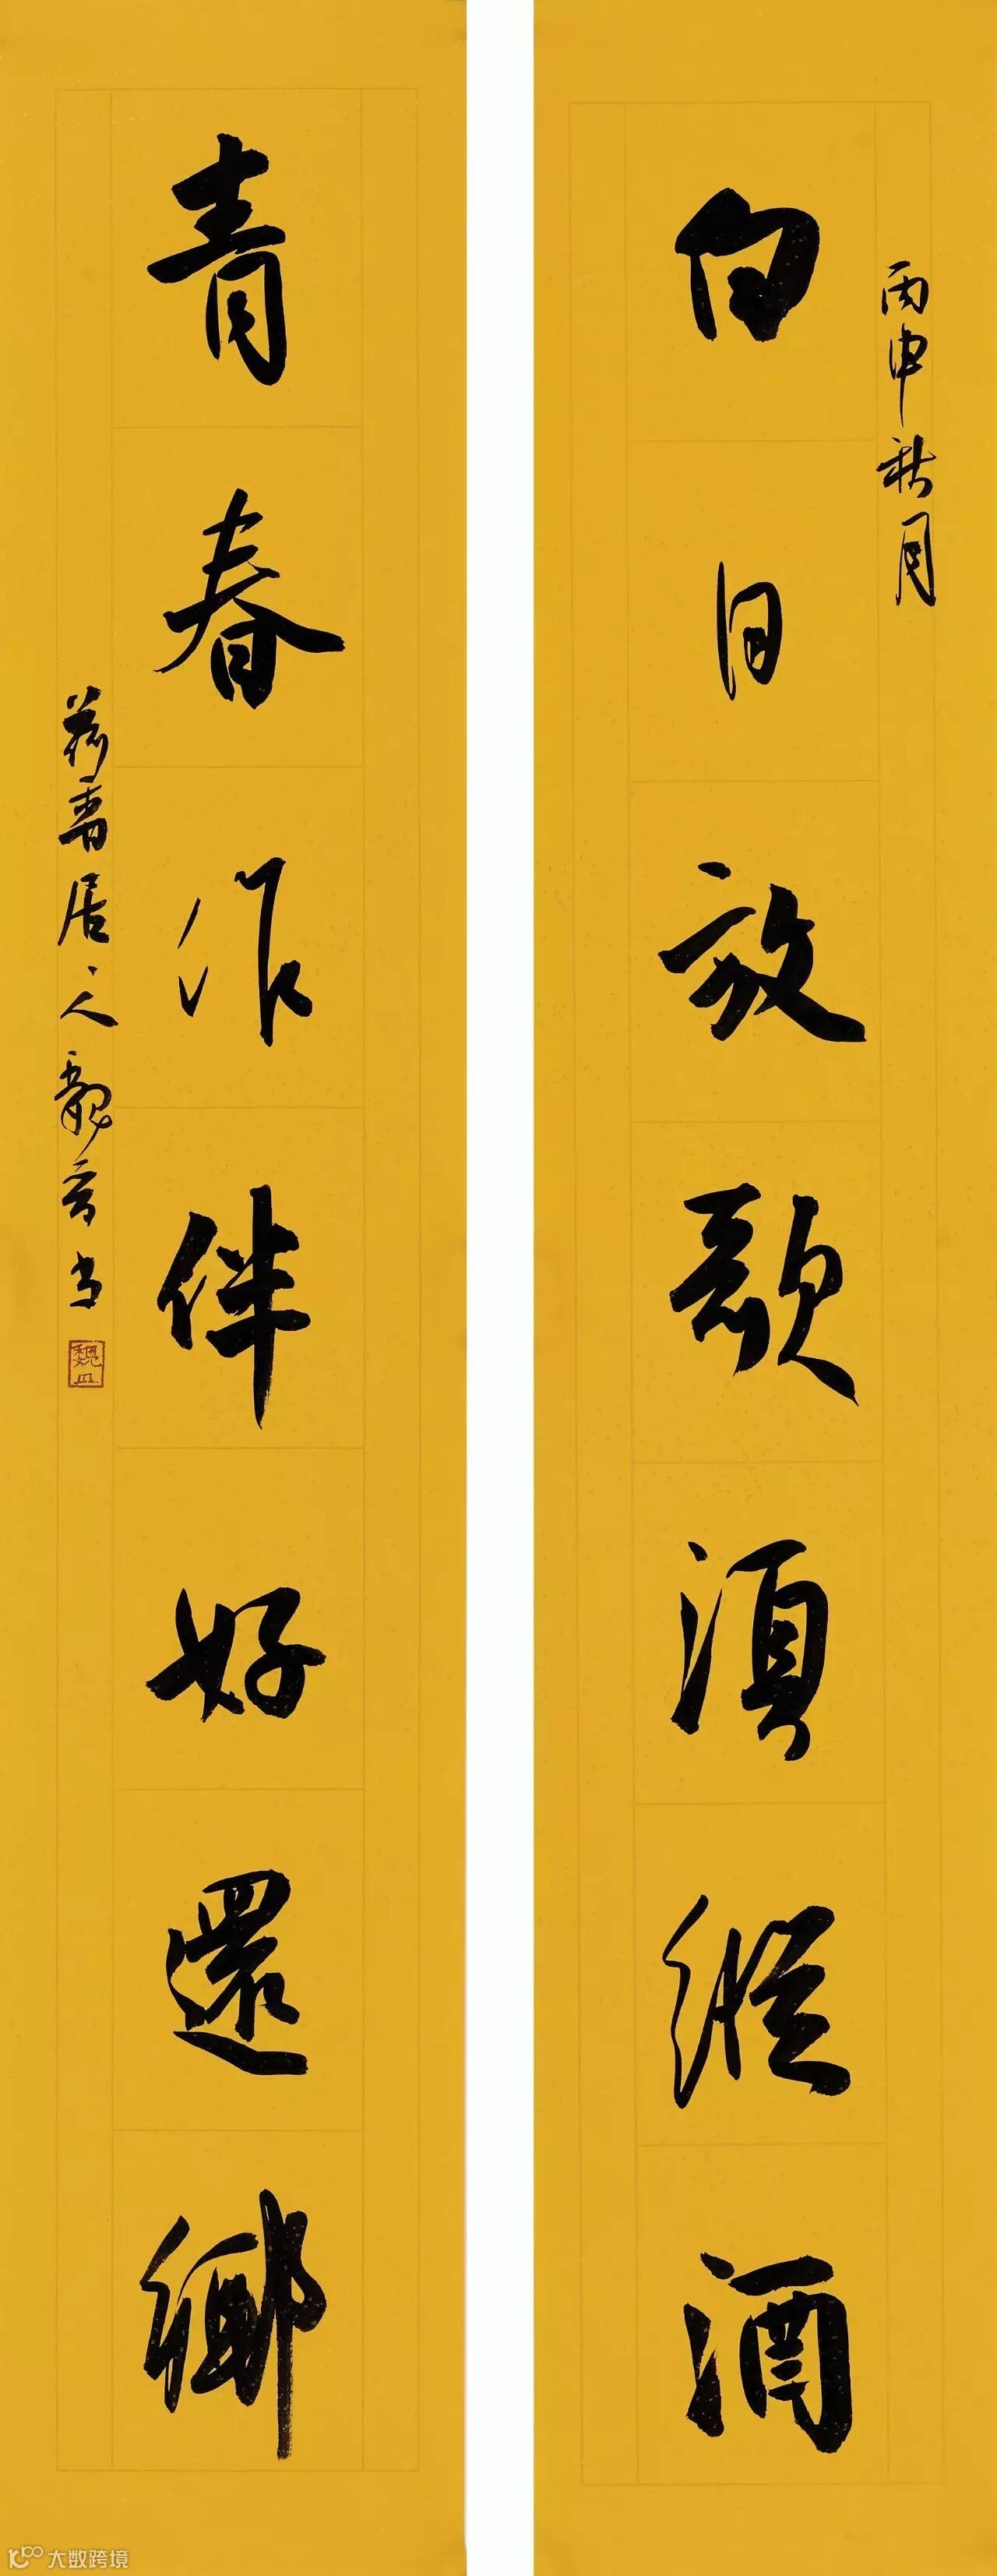 丙申秋月
白日放歌須縱酒
青春作伴好還鄉
荷香居人龍音书
大数跨境